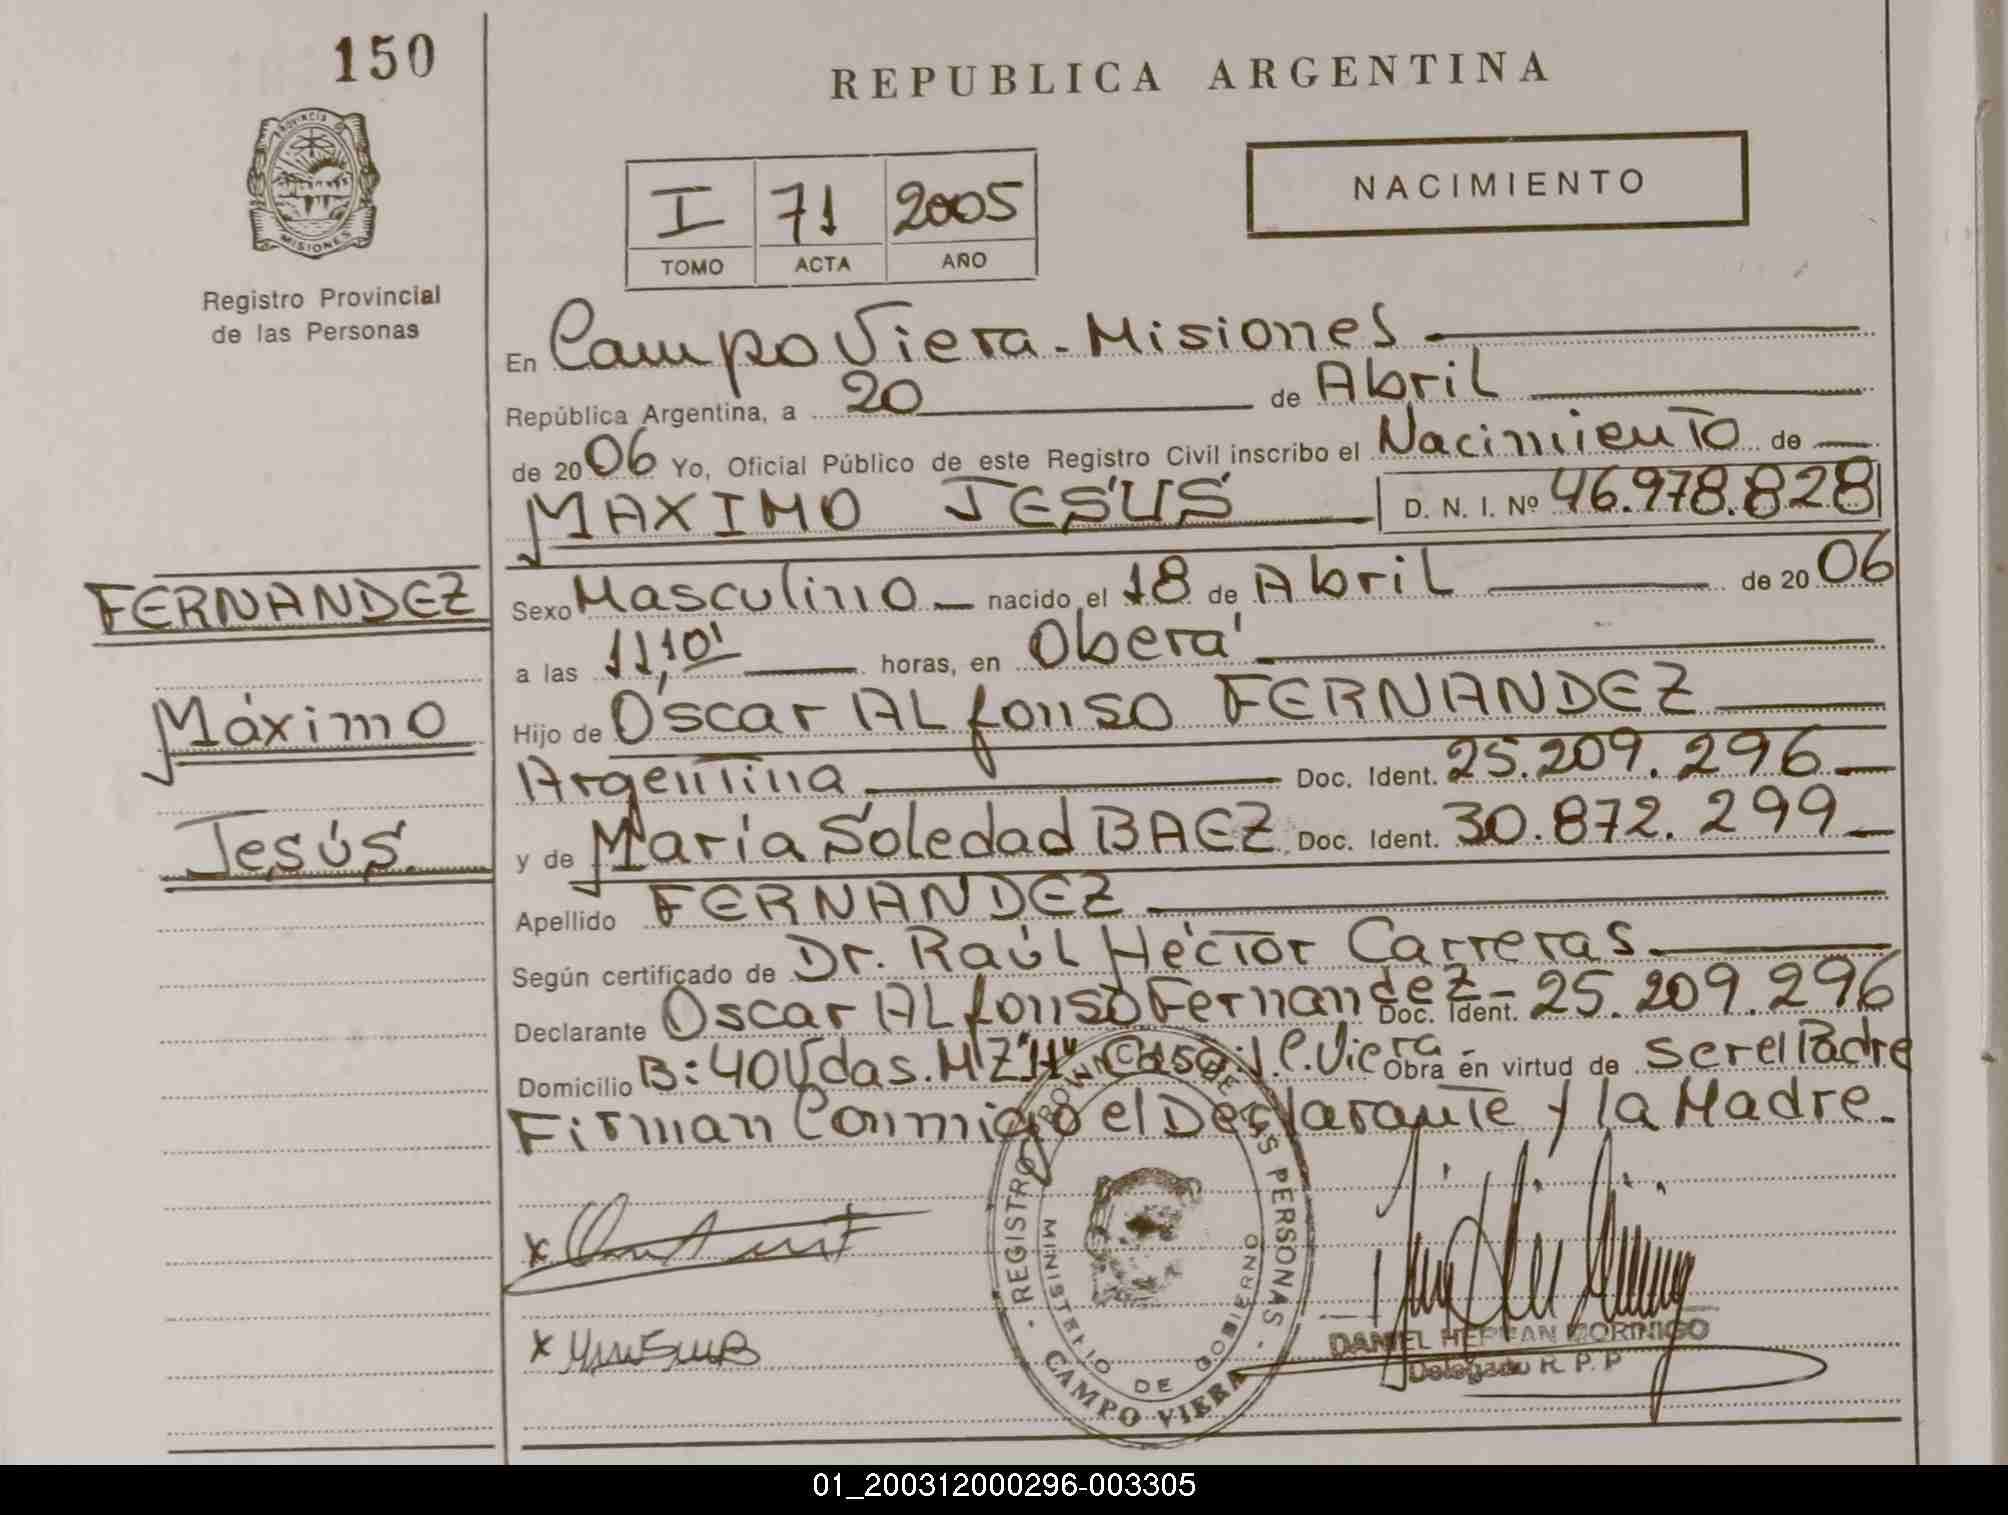 150
REPUBLICA ARGENTINA
PROVINCIA DE
MISIONES
Registro Provincial
de las Personas
I 71 2005
TOMO ACTA AÑO
NACIMIENTO
En Campo Viera - Misiones
República Argentina, a 20 de Abril
de 2006 Yo, Oficial Público de este Registro Civil inscribo el Nacimiento de
MAXIMO JESÚS D. N. I. Nº 46.978.828
FERNANDEZ
Máximo
Jesús
Sexo Masculino nacido el 18 de Abril de 2006
a las 11,10' horas, en Oberá
Hijo de Oscar Alfonso FERNANDEZ
Argentina Doc. Ident. 25.209.296
y de María Soledad BAEZ Doc. Ident. 30.872.299
Apellido FERNANDEZ
Según certificado de Dr. Raúl Héctor Carreras
Declarante Oscar Alfonso Fernandez - Doc. Ident. 25.209.296
Domicilio B: 40 Vdas. MZ "H" Casa: 1 C. Viera - Obra en virtud de ser el Padre
Firman Conmigo el Declarante y la Madre.
REGISTRO PROVINCIAL DE LAS PERSONAS
MINISTERIO DE GOBIERNO
CAMPO VIERA
x
x
DANIEL HERNAN MORINIGO
Delegado R. P. P
01_200312000296-003305